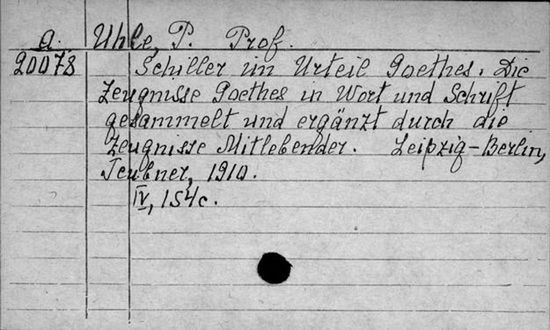 a. Uhle, P. Prof.
20073 Schiller im Urteil Goethes. Die
Zeugnisse Goethes in Wort und Schrift
gesammelt und ergänzt durch die
Zeugnisse Mitlebender. Leipzig-Berlin,
Teubner, 1910.
IV, 154 c.